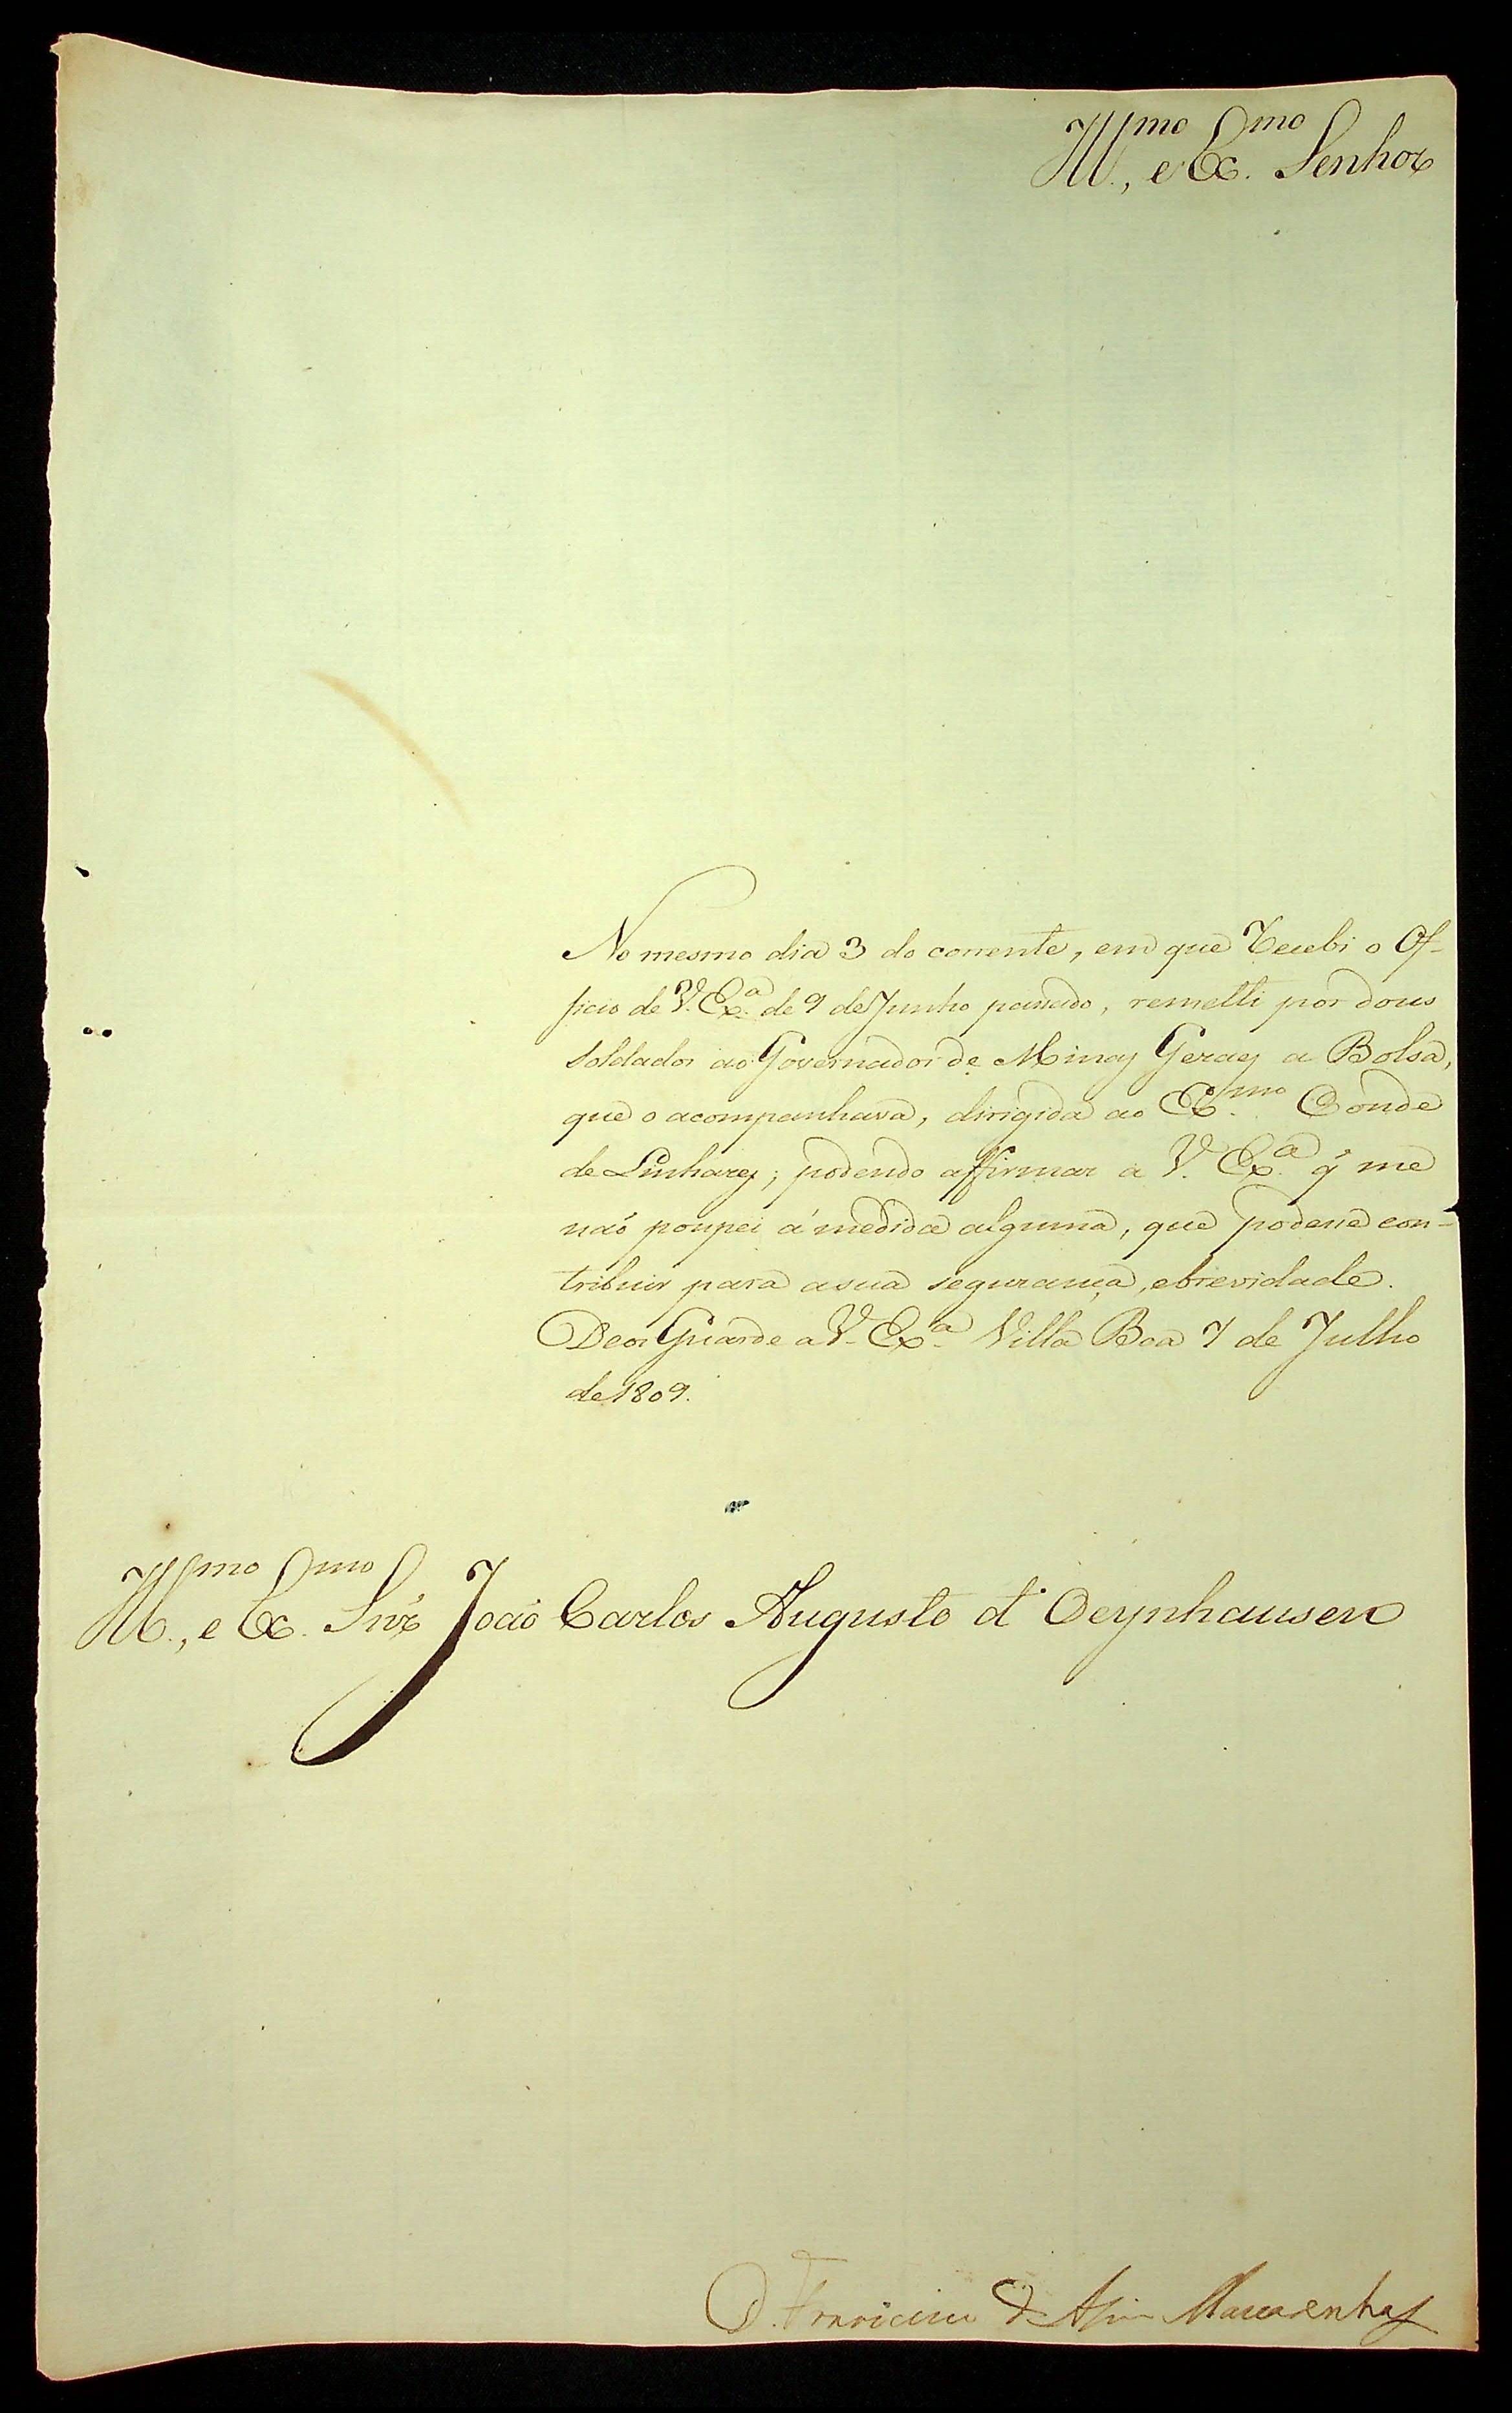 Ill.mo, e Ex.mo Senhor
No mesmo dia 3 do corrente, em que recebi o Of-
ficio de V. Ex.a de 9 de Junho passado, remetti por dous
soldados ao Governador de Minas Geraes a Bolsa,
que o acompanhava, dirigida ao Ex.mo Conde
de Linhares; podendo affirmar a V. Ex.a q̃ me
naõ poupei á medida alguma, que podesse con-
tribuir para a sua segurança, e brevidade.
Deos Guarde a V. Ex.a Villa Boa 7 de Julho
de 1809.
Ill.mo, e Ex.mo Snr̃ Joaõ Carlos Augusto d' Oeynhausen
D. Francisco de Assis Mascarenhas